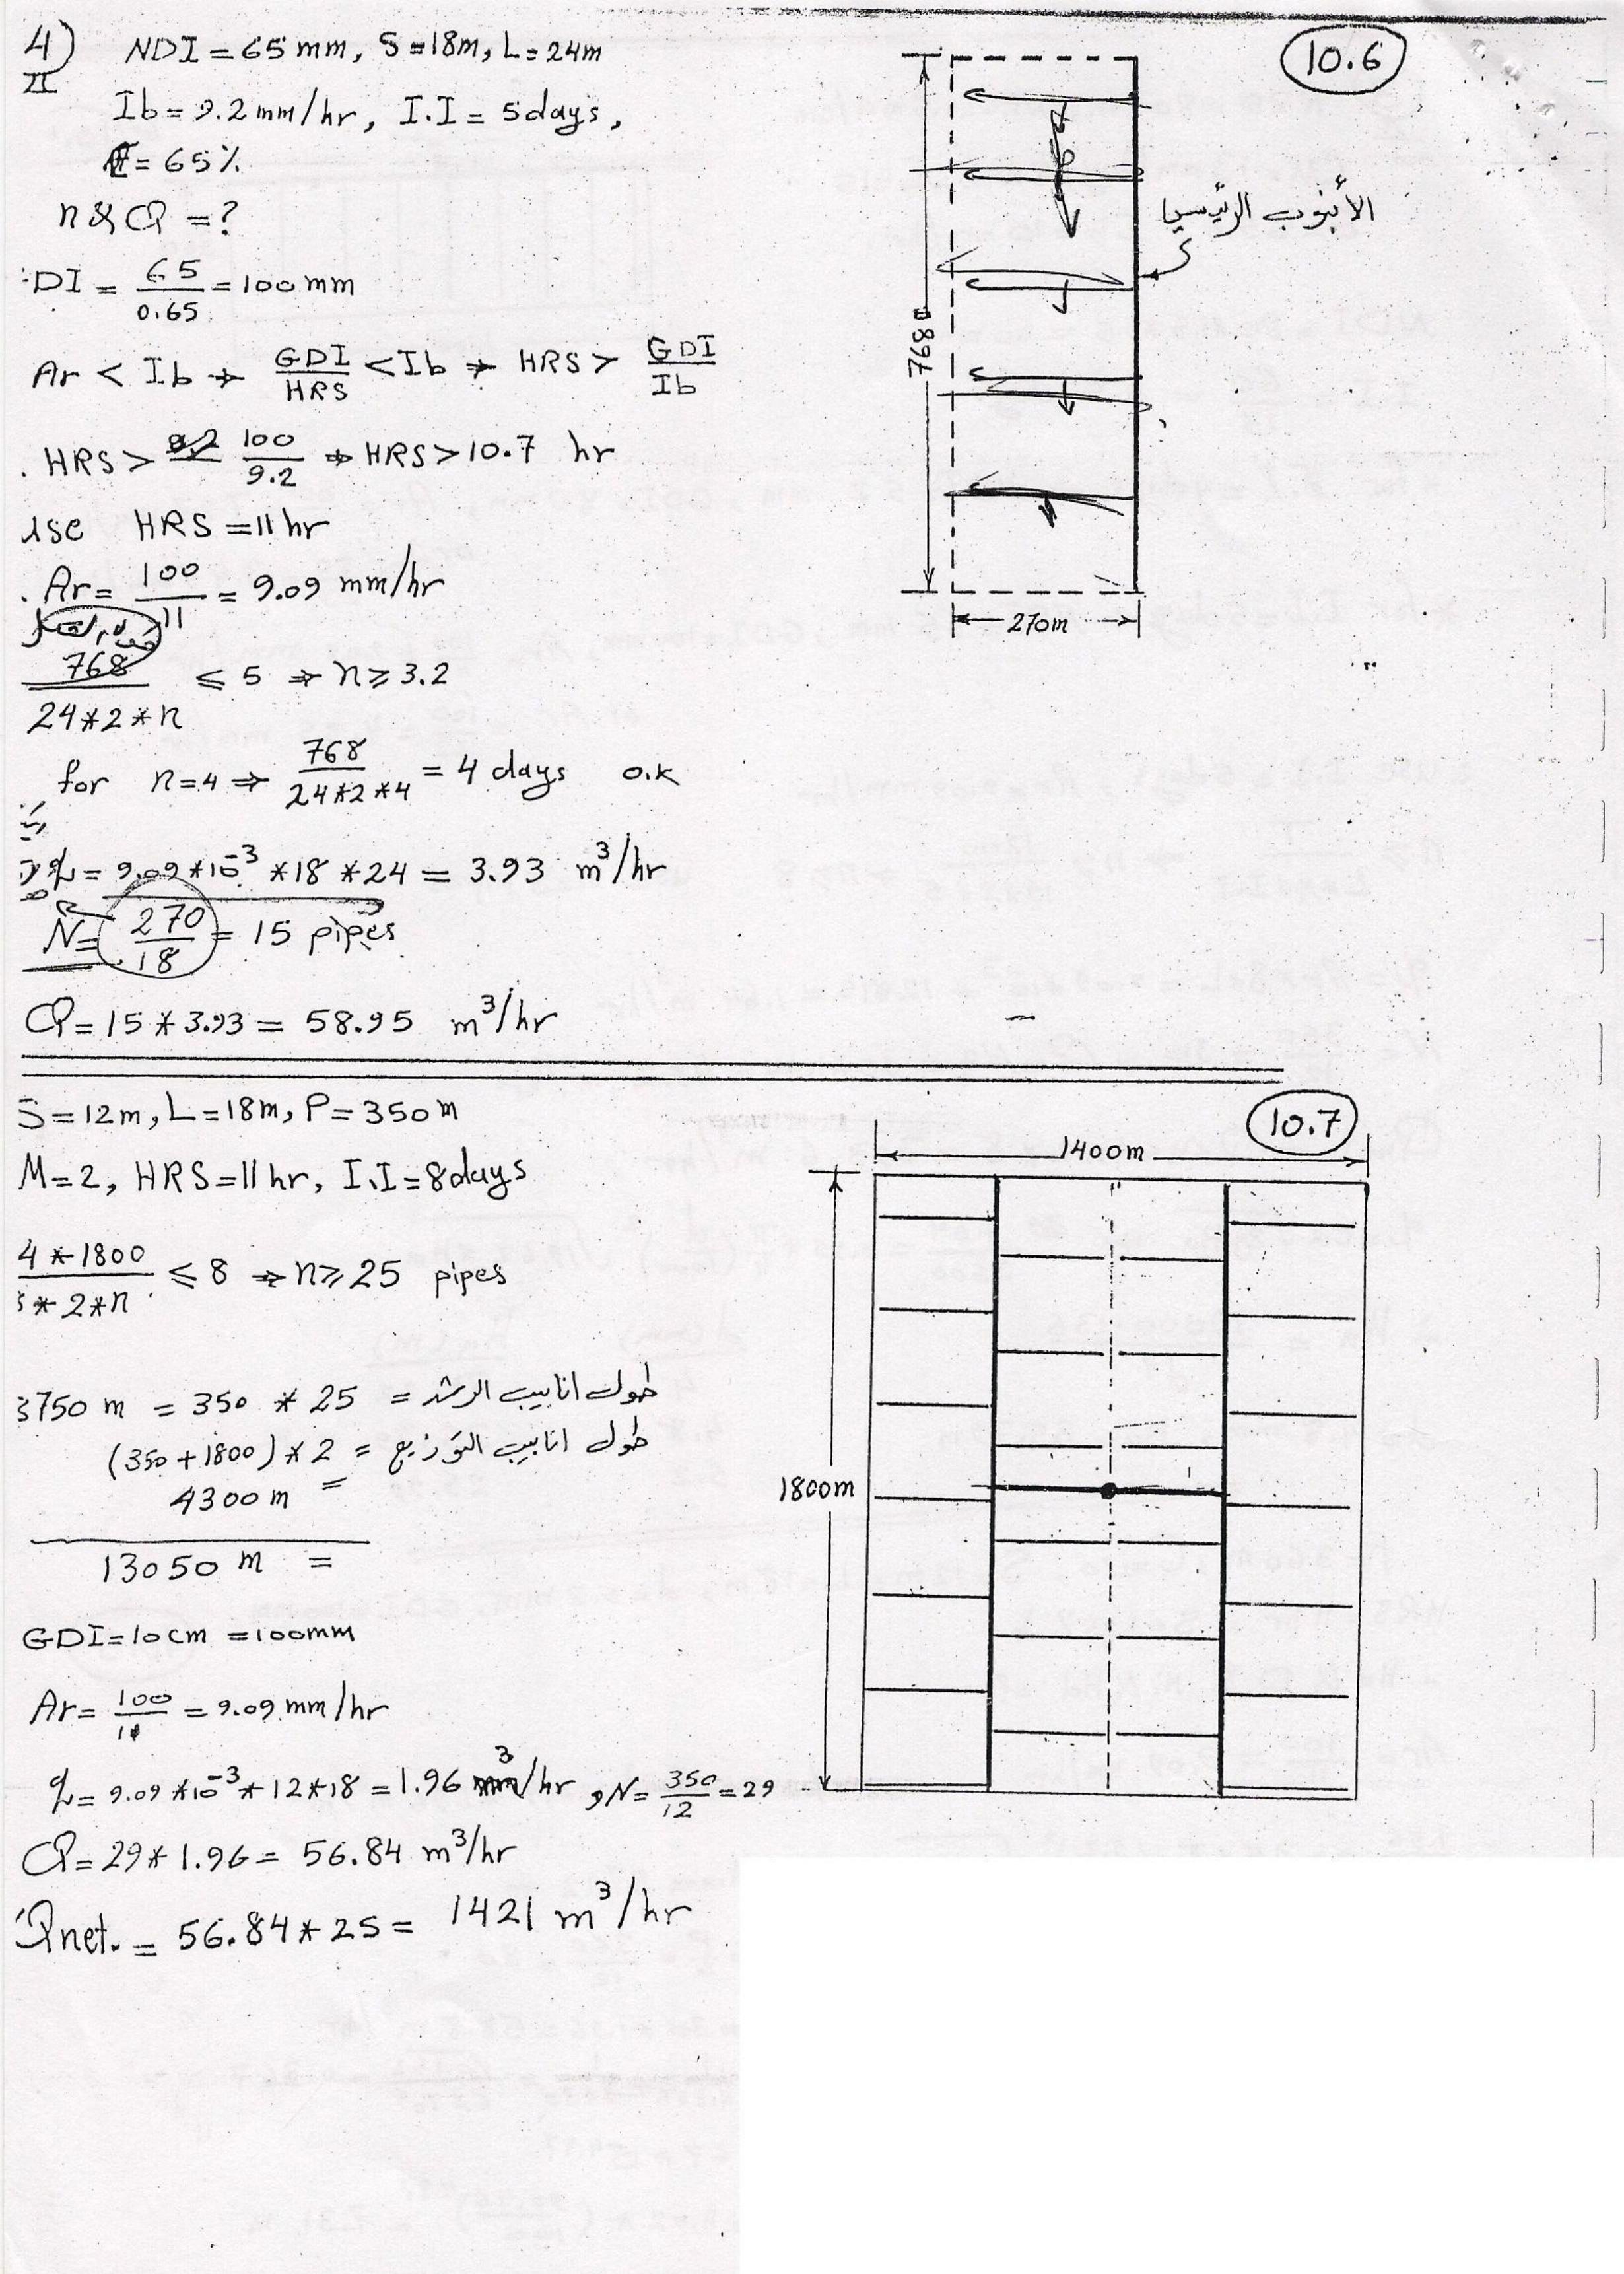 4)
II
NDI = 65 mm, S = 18m, L = 24m
Ib = 9.2 mm/hr, I.I = 5 days,
= 65%
n & Q = ?
DI = 65/0.65 = 100 mm
Ar < Ib → GDI/HRS < Ib → HRS > GDI/Ib
HRS > 100/9.2 ⇒ HRS > 10.7 hr
use HRS = 11 hr
Ar = 100/11 = 9.09 mm/hr
768/24*2*n ≤ 5 ⇒ n ≥ 3.2
for n=4 ⇒ 768/24*2*4 = 4 days o.k
q = 9.09*10^-3 *18 *24 = 3.93 m³/hr
N = 270/18 = 15 pipes
Q = 15 * 3.93 = 58.95 m³/hr
10.6
الأنبوب الرئيسي
768 m
270m
S = 12m, L = 18m, P = 350m
M = 2, HRS = 11 hr, I.I = 8 days
4*1800/*2*n ≤ 8 ⇒ n ≥ 25 pipes
طول انابيب الرش = 25 * 350 = 3750 m
طول انابيب التوزيع = 2 * (350 + 1800)
= 4300 m
= 13050 m
GDI = 10 cm = 100mm
Ar = 100/11 = 9.09 mm/hr
q = 9.09 *10^-3 * 12*18 = 1.96 m³/hr , N = 350/12 = 29
Q = 29 * 1.96 = 56.84 m³/hr
Qnet. = 56.84 * 25 = 1421 m³/hr
10.7
1400m
1800m